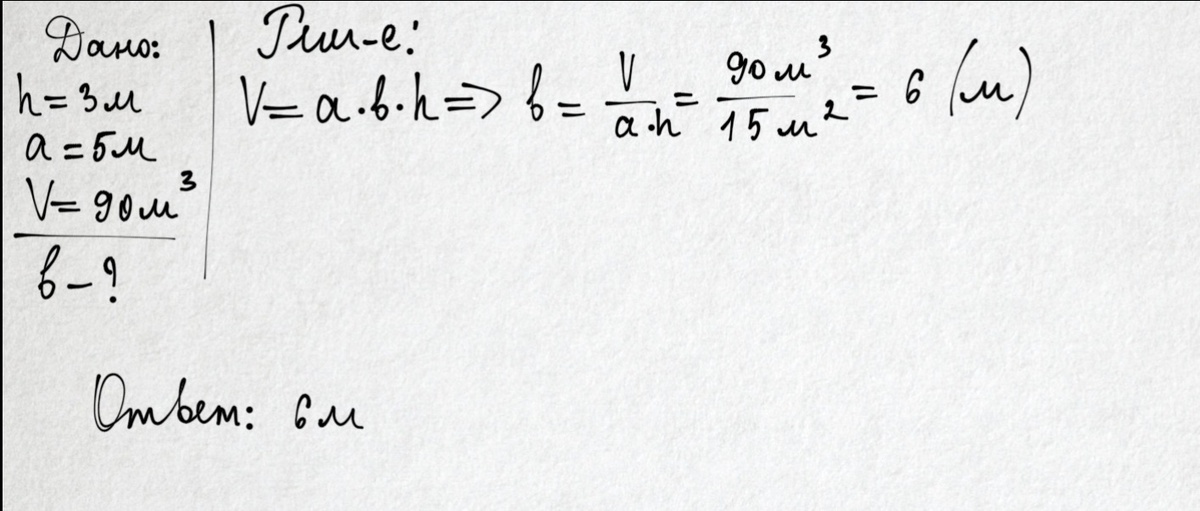 Дано:
h = 3 м
a = 5 м
V = 90 м³
b - ?
Реш-е:
V = a · b · h => b = V / a · h = 90 м³ / 15 м² = 6 (м)
Ответ: 6 м